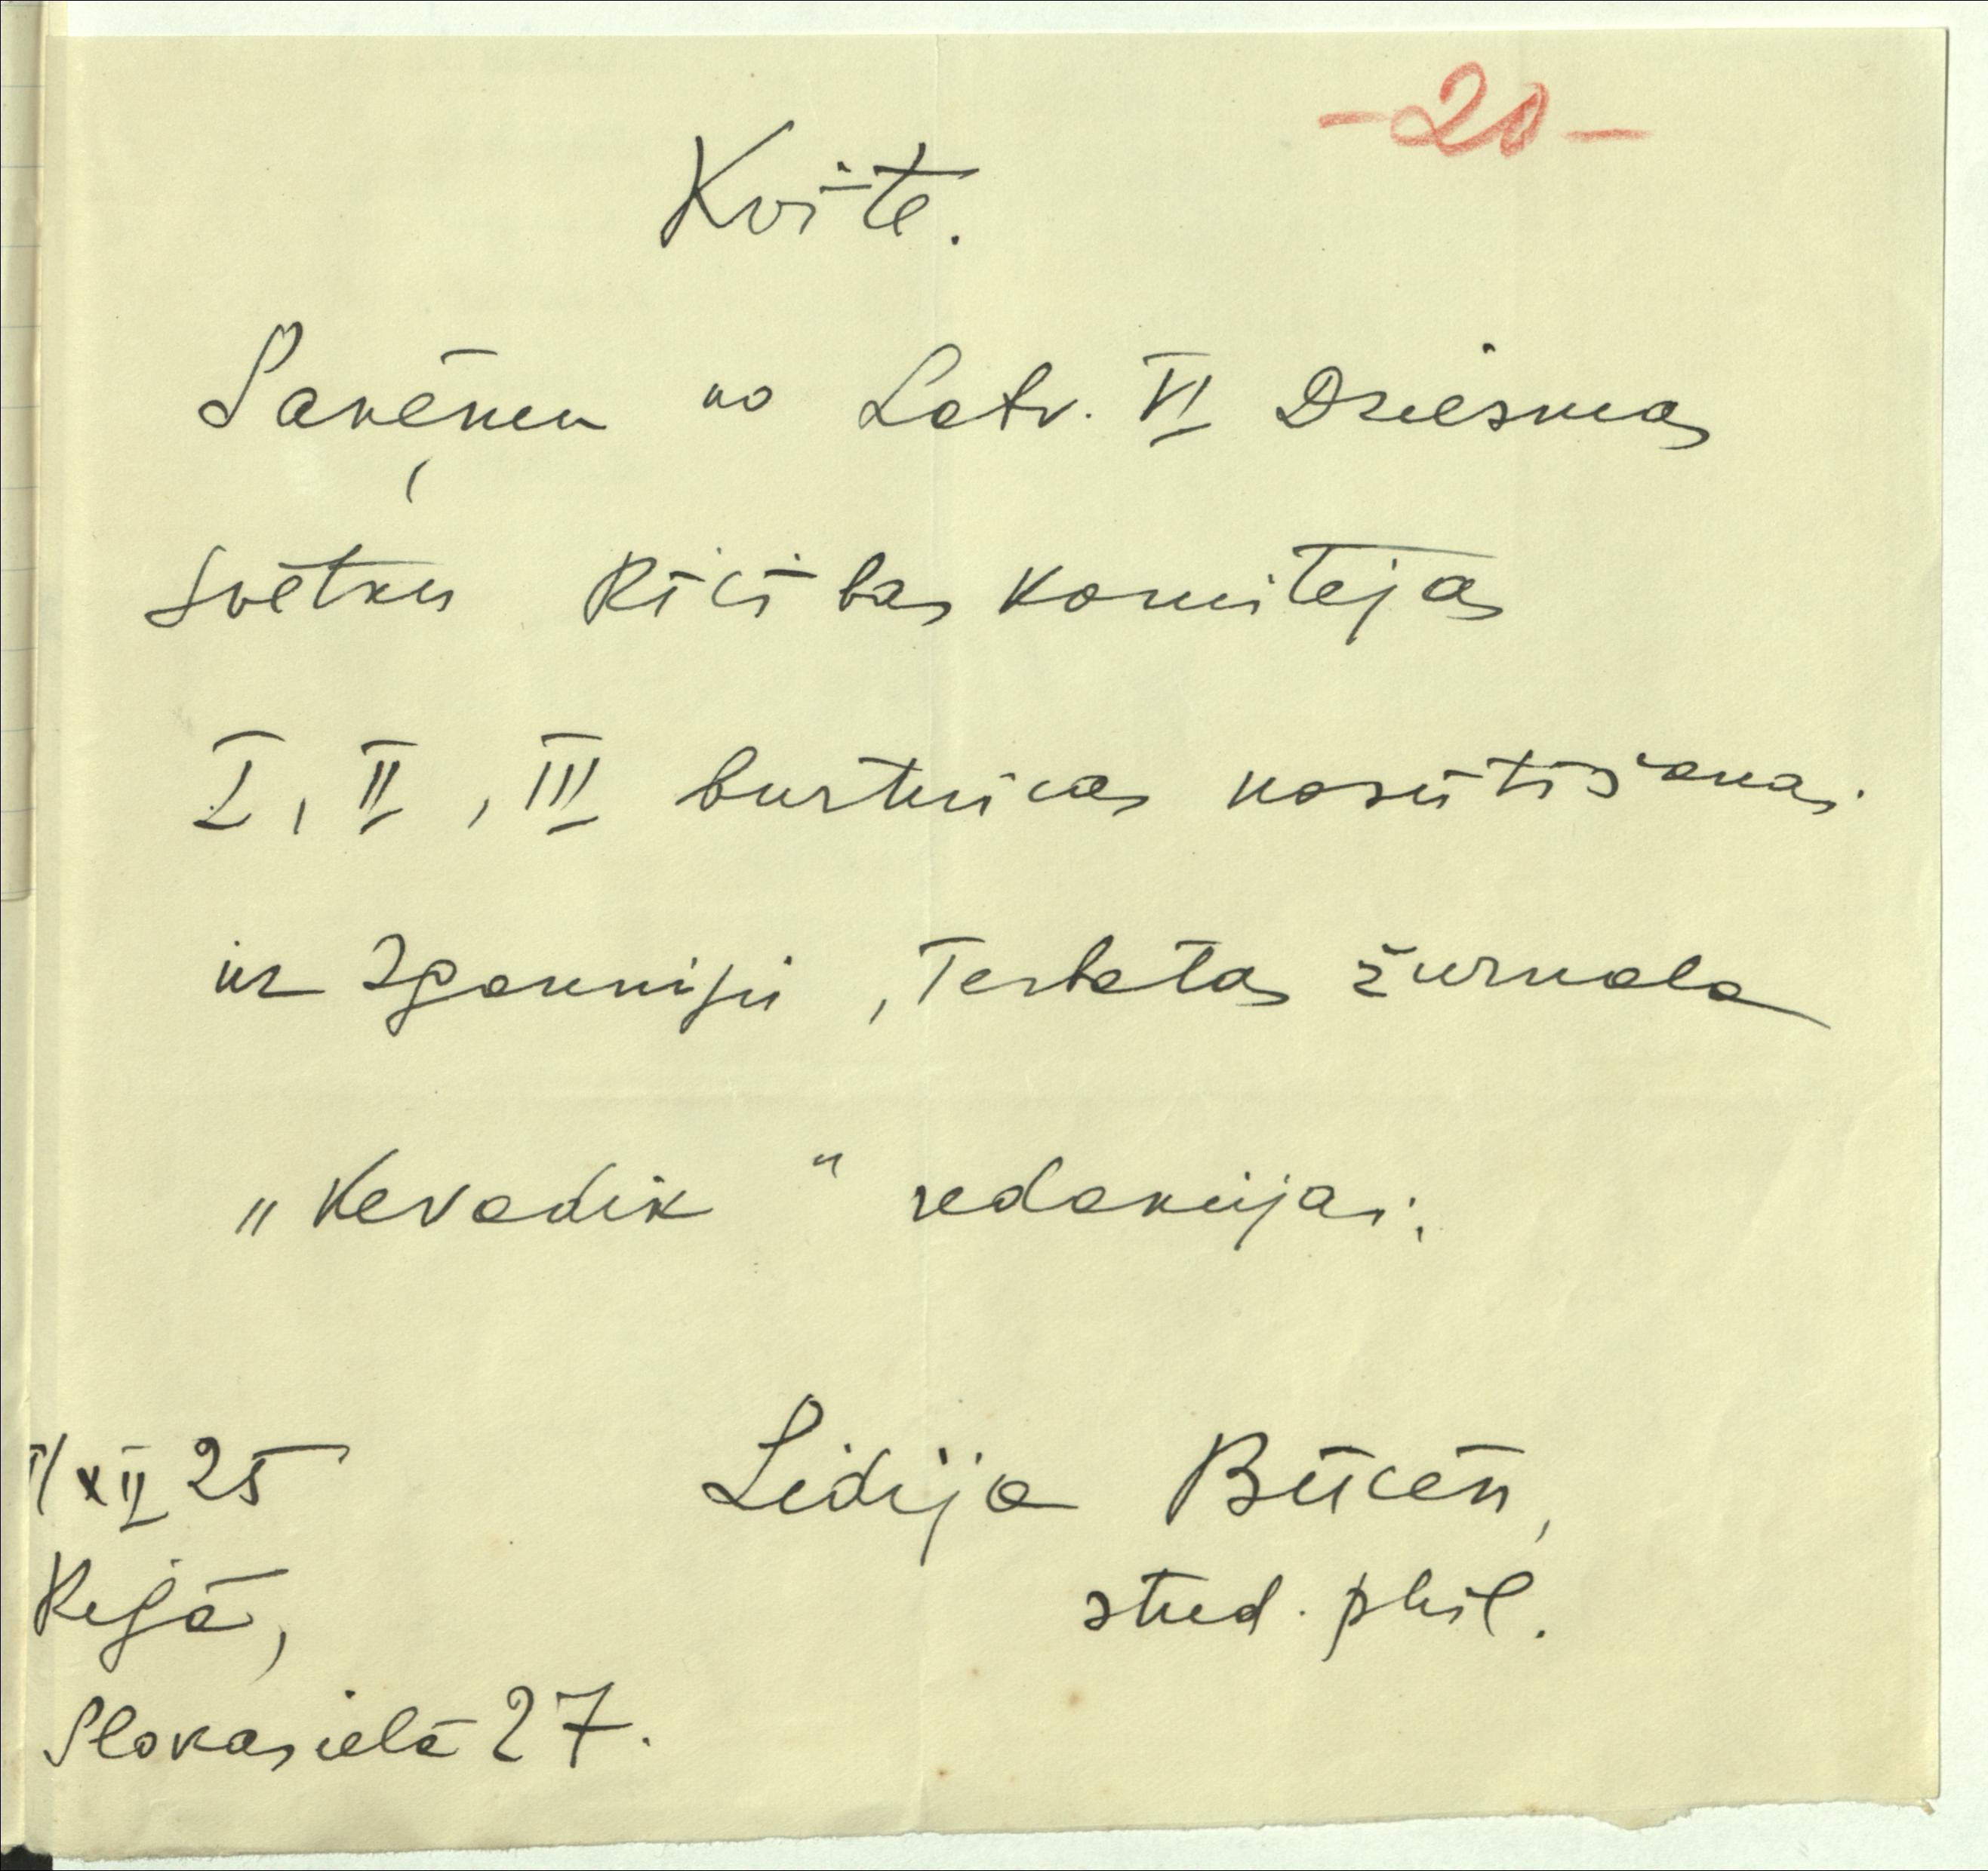 -20-
Kvīte.
Saņēmu no Latv. VI Dziesmas
svētku Rīcības komitejas
I, II, III burtnīcas nosūtīšanai
uz Igauniju, Tērbatas žurnāla
„Kevadik" redakcijai.
XII 25 Lidija Būcēn,
Rīgā, stud. phil.
Slokas ielā 27.